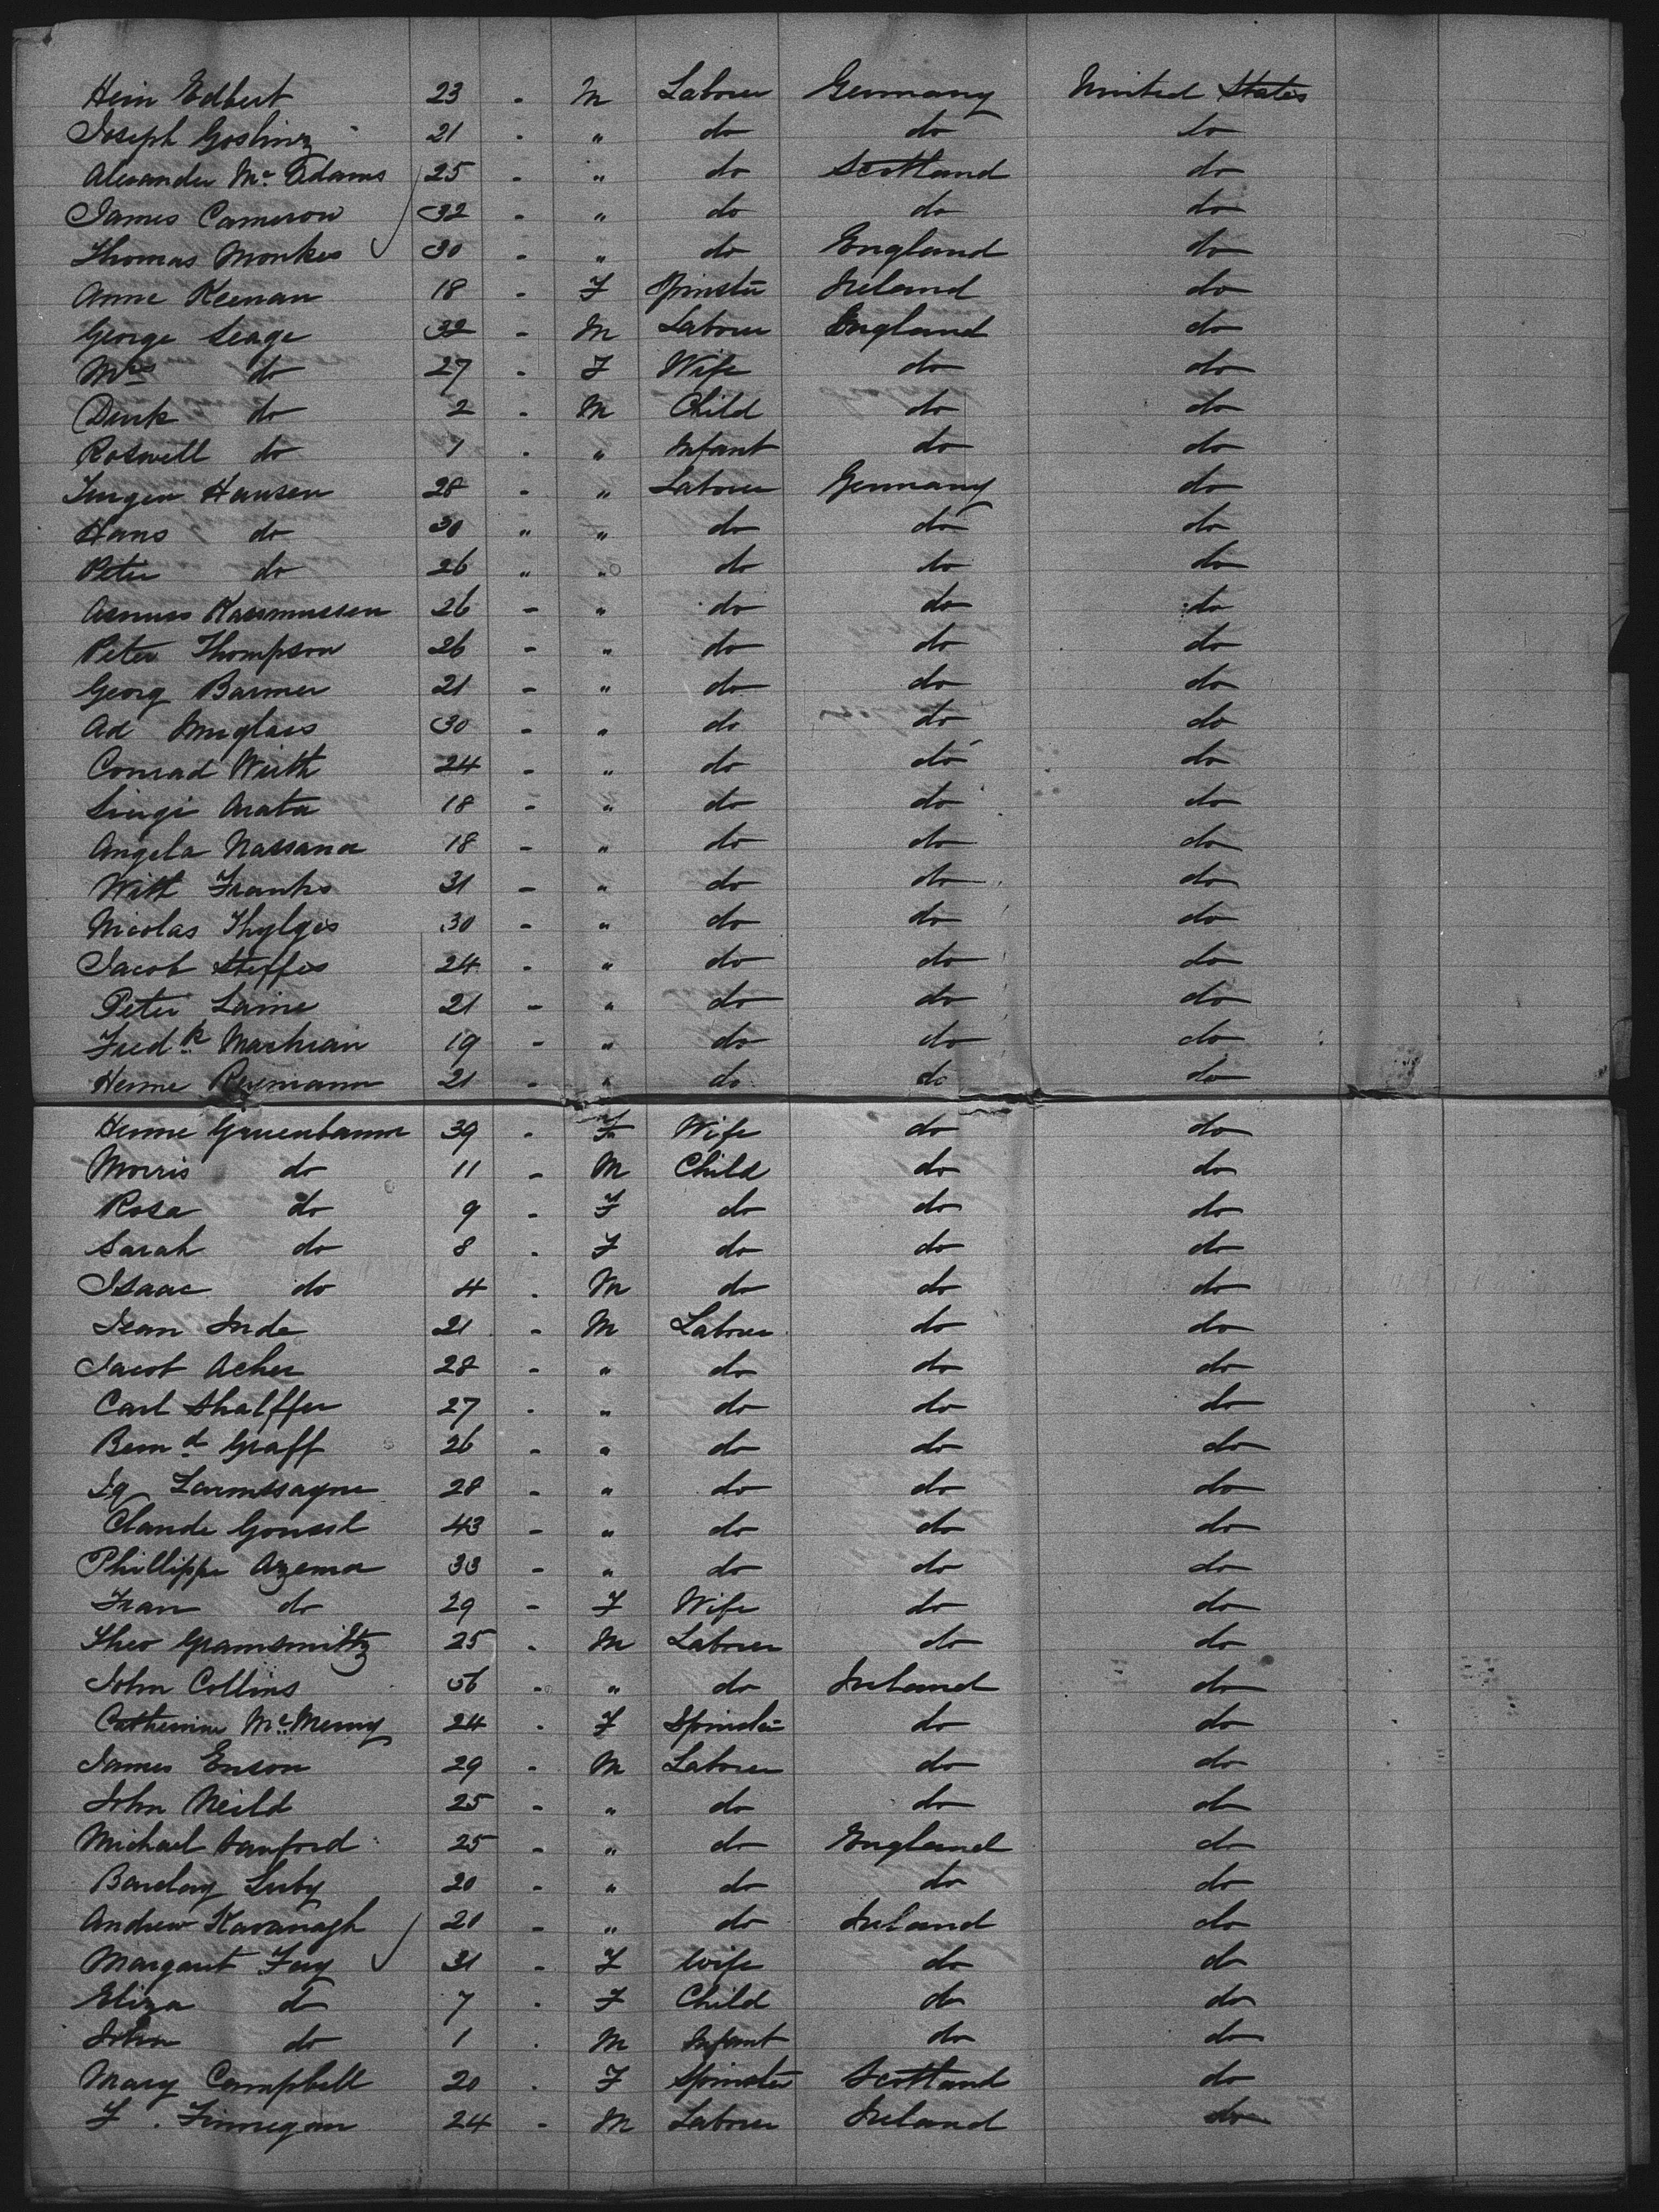 Hein Edbert 23 - M Laborer Germany United States
Joseph Goslinz 21 - " do do do
Alexander Mc Adams 25 - " do Scotland do
James Cameron 32 - " do do do
Thomas Monkes 30 - " do England do
Anne Keenan 18 - F Spinster Ireland do
George Seage 32 - M Laborer England do
Mrs do 27 - F Wife do do
Denk do 2 - M Child do do
Roswell do 1 - " Infant do do
Jurgen Hansen 28 - " Laborer Germany do
Hans do 30 " " do do do
Peter do 26 " " do do do
Asmus Rassmussen 26 - " do do do
Peter Thompson 26 - " do do do
Georg Barmer 21 - " do do do
Ad 30 - " do do do
Conrad Wirth 24 - " do do do
Luigi Arata 18 - " do do do
Angela Nassana 18 - " do do do
Witt Franks 31 - " do do do
Nicolas Thylges 30 - " do do do
Jacob Steffes 24 - " do do do
Peter Laine 21 - " do do do
Fredk Marhian 19 - " do do do
Henne Reymann 21 - " do do do
Henne Gruenbaum 39 - F Wife do do
Morris do 11 - M Child do do
Rosa do 9 - F do do do
Sarah do 8 - F do do do
Isaac do 4 - M do do do
Jean Inde 21 - M Laborer do do
Jacob Acher 28 - " do do do
Carl Shalffer 27 - " do do do
Bernd Graff 26 - " do do do
Ig 28 - " do do do
Claude Goussl 43 - " do do do
Phillippe Azema 33 - " do do do
Fran do 29 - F Wife do do
Theo Gramsmiltz 25 - M Laborer do do
John Collins 36 - " do Ireland do
Catherine Mc Meny 24 - F Spinster do do
James Enson 29 - M Laborer do do
John Neild 25 - " do do do
Michael Sanford 25 - " do England do
Barclay Luby 20 - " do do do
Andrew Kavanagh 21 - " do Ireland do
Margaret Fay 31 - F Wife do do
Eliza do 7 - F Child do do
John do 1 - M Infant do do
Mary Campbell 20 - F Spinster Scotland do
F. Finnegan 24 - M Laborer Ireland do